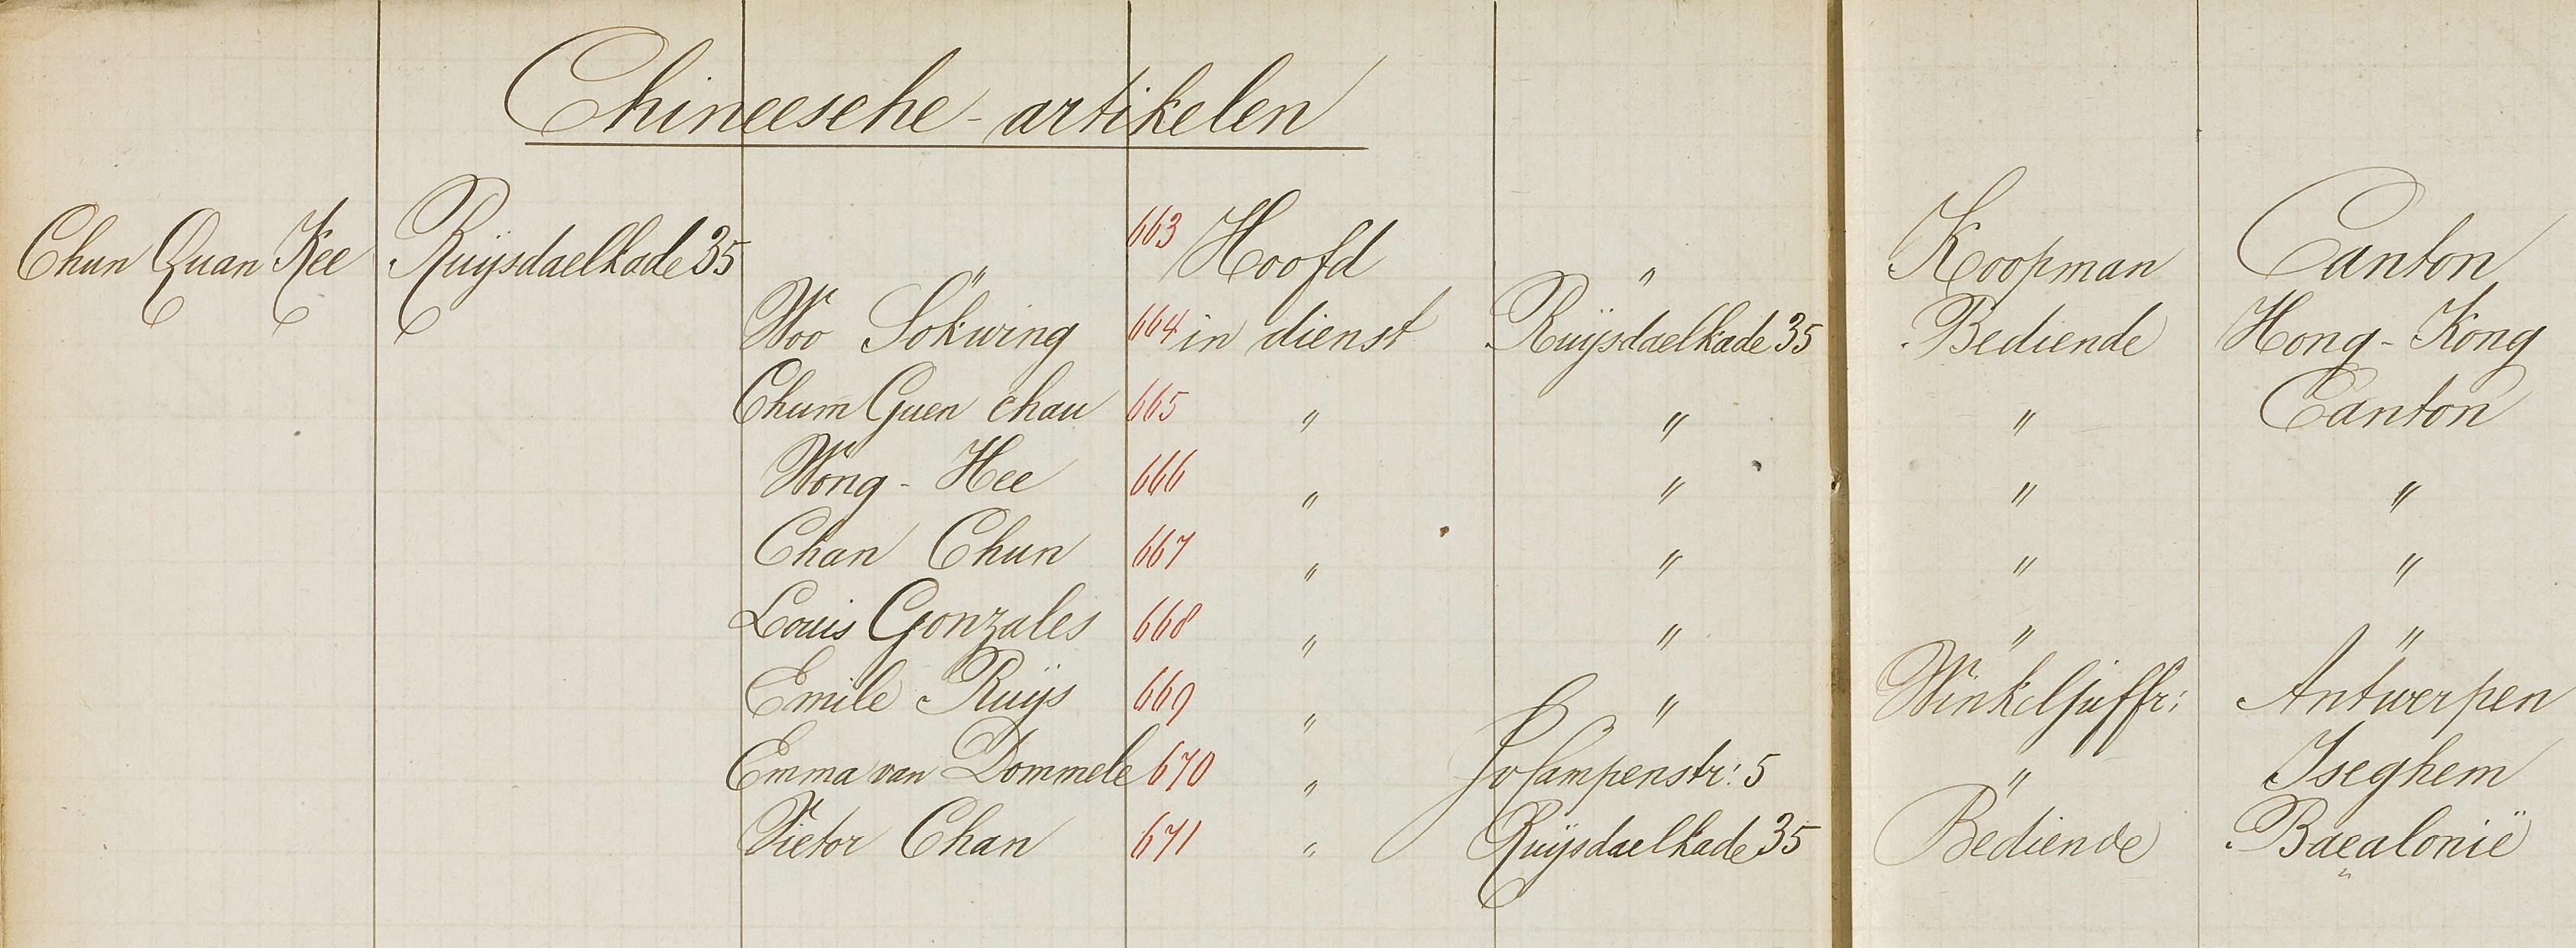 Chineesche - artikelen
Chun Quan Kee Ruijsdaelkade 35 " 663 Hoofd " Koopman Canton
Woo Sokwing 664 in dienst Ruijsdaelkade 35 Bediende Hong-Kong
Chum Guen chau 665 " " " Canton
Wong - Hee 666 " " " "
Chan Chun 667 " " " "
Louis Gonzales 668 " " " "
Emile Ruijs 669 " " Winkeljuffr: Antwerpen
Emma van Dommele 670 " 5 " Iseghem
Victor Chan 671 " Ruijsdaelkade 35 Bediende